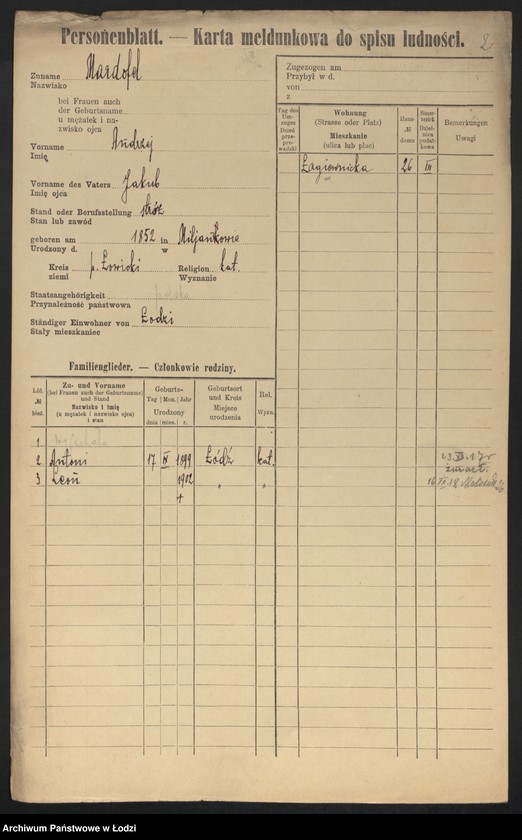 Personenblatt. — Karta meldunkowa do spisu ludności.
2
Zuname Mardofel
Nazwisko
bei Frauen auch
der Geburtsname
u mężatek i nu-
zwisko ojca
Vorname Andrzej
Imię
Vorname des Vaters Jakub
Imię ojca
Stand oder Berufsstellung stróż
Stan lub zawód
geboren am 1852 in Miljankowie
Urodzony d. w
Kreis p. Łowicki Religion kat.
ziemi Wyznanie
Staatsangehörigkeit polska
Przynależność państwowa
Ständiger Einwohner von Łodzi
Stały mieszkaniec
Zugezogen am
Przybył w d.
von
z
Tag des Um-zuges Dzień prze-prowadzki
Wohnung
(Strasse oder Platz)
Mieszkanie
(ulica lub plac)
Haus-№ domu
Steuer-bezirk Dzielnica podatkowa
Bemerkungen
Uwagi
Łagiewnicka 26 III
Familienglieder. — Członkowie rodziny.
Lfd. № bież.
Zu- und Vorname
(bei Frauen auch der Geburtsname)
und Stand
Nazwisko i imię
(u mężatek i nazwisko ojca)
i stan
Geburts-
Tag Mon. Jahr
Urodzony
dnia mies. r.
Geburtsort
und Kreis
Miejsce
urodzenia
Rel.
Wyzn.
1
2 Antoni 17 IV 1899 Łódź kat.
3 Leon 1902 " "
+
zmarł.
Archiwum Państwowe w Łodzi